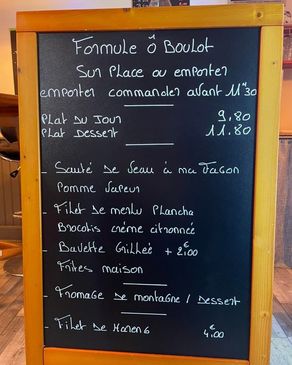 Formule Ô Boulot
Sur Place ou emporter
emporter commander avant 11h30
Plat du Jour 9.80
Plat Dessert 11.80
- Sauté de Veau à ma Façon
Pomme Vapeur
- Filet de merlu Plancha
Brocolis crème citronnée
- Bavette Grillée + 2€,00
Frites maison
- Fromage de montagne / Dessert
- Filet de Hareng 4€,00